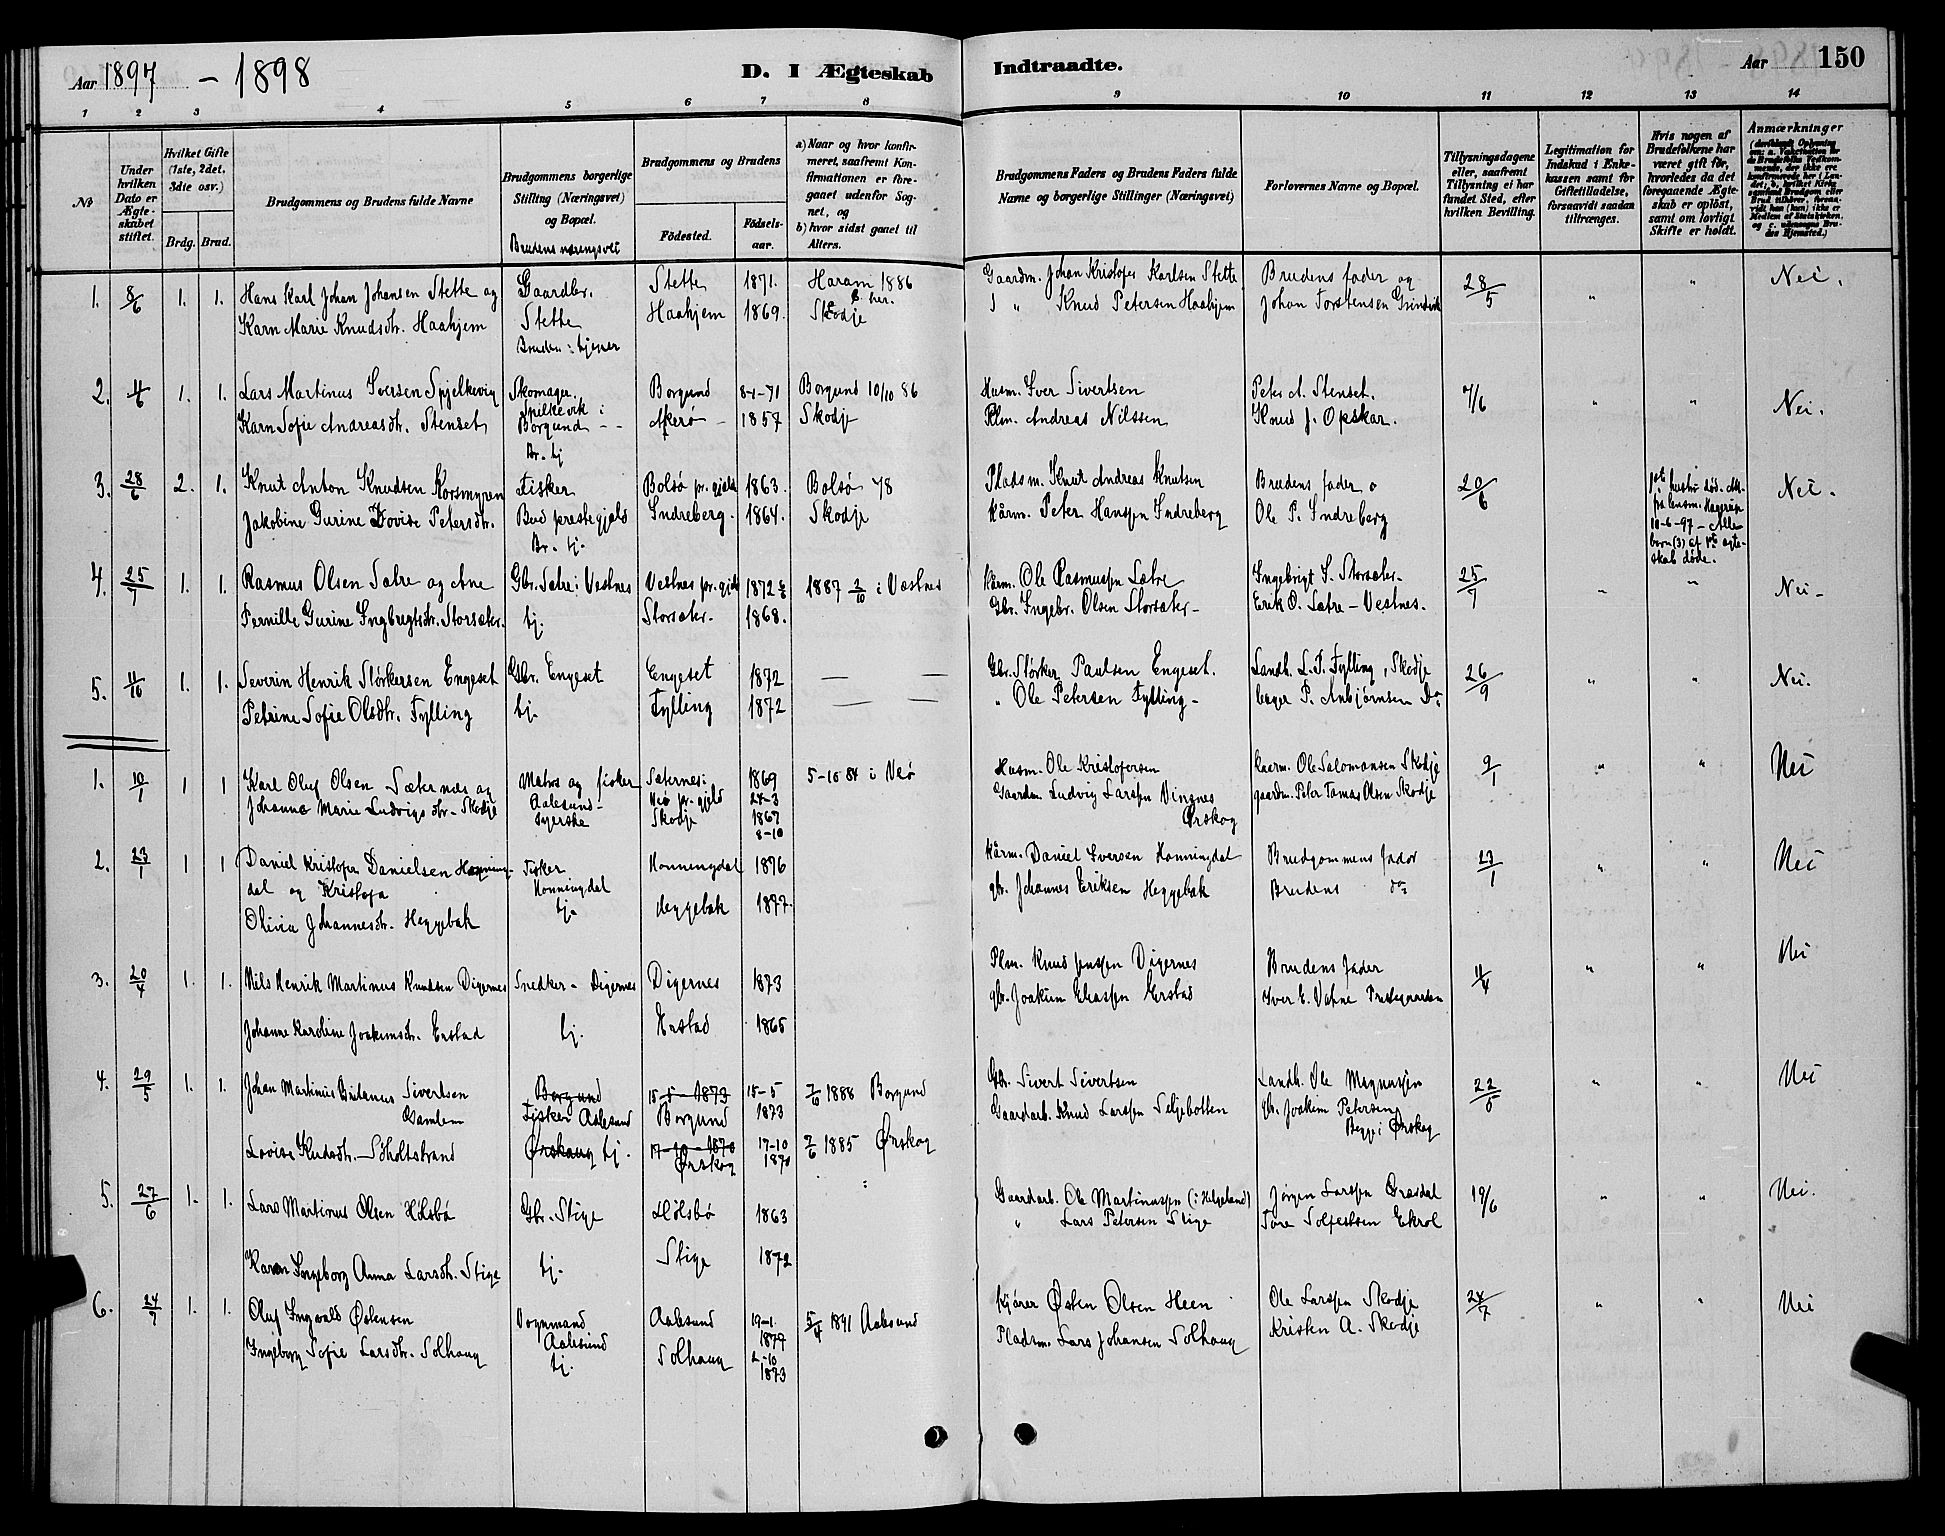 Aar 1897 - 1898
D. I Ægteskab Indtraadte.
Aar 150
1 2 3 4 5 6 7 8 9 10 11 12 13 14
No
Under hvilken Dato er Ægteskabet stiftet.
Hvilket Gifte (1ste, 2det, 3die osv.)
Brdg. Brud.
Brudgommens og Brudens fulde Navne
Brudgommens borgerlige Stilling (Næringsvei) og Bopæl.
Brudens næringsvei
Brudgommens og Brudens
Fødested. Fødselsaar.
a) Naar og hvor konfirmeret, saafremt Konfirmationen er foregaaet udenfor Sognet, og
b) hvor sidst gaaet til Alters.
Brudgommens Faders og Brudens Faders fulde Navne og borgerlige Stillinger (Næringsvei)
Forlovernes Navne og Bopæl.
Tillysningsdagene eller, saafremt Tillysning ei har fundet Sted, efter hvilken Bevilling.
Legitimation for Indskud i Enkekassen samt for Giftetilladelse, forsaavidt saadan tiltrænges.
Hvis nogen af Brudefolkene har været gift før, hvorledes da det foregaaende Ægteskab er opløst, samt om lovligt Skifte er holdt.
Anmærkninger
1. 8/6 1. 1. Hans Karl Johan Johansen Stette og Gaardbr. Stette 1871. Haram 1886 Gaardm. Johan Kristofer Karlsen Stette Brudens fader og 28/5 " " Nei.
Karn Marie Knudsdtr. Haahjem Stette Haahjem 1869. Skodje " Knud Petersen Haahjem Johan Torstensen Grindvik
Bruden: tjener
2. 4/6 1. 1. Lars Martinus Iversen Spjelkevig Skomager. Borgund 8-1-71 Borgund 10/10 86 Husm. Iver Sivertsen Peter A. Stenset. 7/6 " " Nei.
Spilkevik i
Karn Sofie Andreasdtr. Stenset Borgund - - Akerø - 1857 Skodje Plm. Andreas Nilssen Knud J. Opskar.
Br. tj
3. 28/6 2. 1. Knut Anton Knudsen Korsmyren Fisker Bolsø pr. gjeld 1863. Bolsø 78 Pladsm. Knut Andreas Knutsen Brudens fader o 20/6 Nei.
Jakobine Gurine Lovise Petersdtr. Bud prestegjeld Indreberg. 1864. Skodje Kårm. Peter Hanssen Indreberg Ole P. Indreberg
Br. tj.
1ste hustru død. Att.
fra lensm.
10-6-97 - Alle
born (3) af 1ste ægte-
skab døde.
4. 25/7 1. 1. Rasmus Olsen Sætre og Ane Gbr. Sætre i Vestnes Vestnes pr. gjeld 1872 1887 2/10 i Vestnes Kårm. Ole Rasmussen Sætre Ingebrigt S. Storsæter. 25/7 " " Nei -
Pernille Gurine Ingbregtsdtr. Storsæter. tj. Storsæter. 1868. Gbr. Ingebr. Olsen Storsæter - Erik O. Sætre - Vestnes.
5. 11/10 1. 1. Severin Henrik Størkersen Engeset Gbr. Engeset Engeset 1872 — — Gbr. Størker Paulsen Engeset. Landh. L. P. Fylling, Skodje 26/9 " " Nei.
Petrine Sofie Olsdtr. Fylling tj. Fylling 1872 — — " Ole Petersen Fylling - P. Anbjørnsen Do
1. 10/1 1 1 Karl Oluf Olsen Sæternes og Matros og fisker Sæternes i 1869 5-10 84 i Neø Husm. Ole Kristofersen Kaarm. Ole Salomonsen Skodje 9/1 " " Nei
Johanne Marie Ludvigsdtr. Skodje Aalesund - Neø pr. gjeld 24-3 Gaardm. Ludvig Larssen Vingnes gaardm. Peter Tomas Olsen Skodje
syerske Skodje 1867 Ørskog
8-10
2. 23/1 1 1 Daniel Kristofer Danielsen Honning- Fisker Honningdal 1876 Kårm. Daniel Iversen Honningdal Brudgommens fader 23/1 " " Nei
dal og Kristofa Honningdal gbr. Johannes Eriksen Heggebak Brudens do
Olivia Johannesdtr. Heggebak tj. Heggebak 1877.
3. 20/4 1. 1. Nils Henrik Martinus Knudsen Digernes Snedker - Digernes Digernes 1873 Plm. Knud Jenssen Digernes Brudens fader 11/4 " " Nei
gbr. Joakim Eliassen Erstad Iver E. Vatne Prestegaarden
Johanne Karoline Joakimsdtr. Erstad tj. Erstad 1865
4. 29/5 1. 1. Johan Martinus Sivertsen Borgund 15-5-1873 15-5 1888 Borgund Gbr. Sivert Sivertsen Landh. Ole Magnussen 22/5 " " Nei
Gamlem Fisker Aalesund Borgund 1873 Gaardarb. Knud Larssen Seljebotten gbr. Joakim Petersen
Begge i Ørskog
Lovise Knudsdtr. Sjøholtstrand Ørskoug tj. 17-10-1870 17-10 1885 Ørskog
Ørskog 1870
5. 27/6 1. 1. Lars Martinus Olsen Hølsbø Gbr. Stige Hølsbø 1863 Gaardarb. Ole Martinussen (i Helgeland) Jørgen Larssen Græsdal 19/6 " " Nei.
" Lars Petersen Stige Tore Solfestsen Ekrol
Karen Ingeborg Anna Larsdtr. Stige tj. Stige 1872
6. 24/9 1. 1. Oluf Ingvald Østensen Vognmand Aalesund 19-1. 5/4 1891 Aalesund Kjører Østen Olsen Heen Ole Larssen Skodje 24/7 " " Nei
Aalesund 1877
Ingeborg Sofie Larsdtr. Solhaug tj. Solhaug 2-10 Pladsm. Lars Johansen Solhaug Kristen A. Skodje
1873